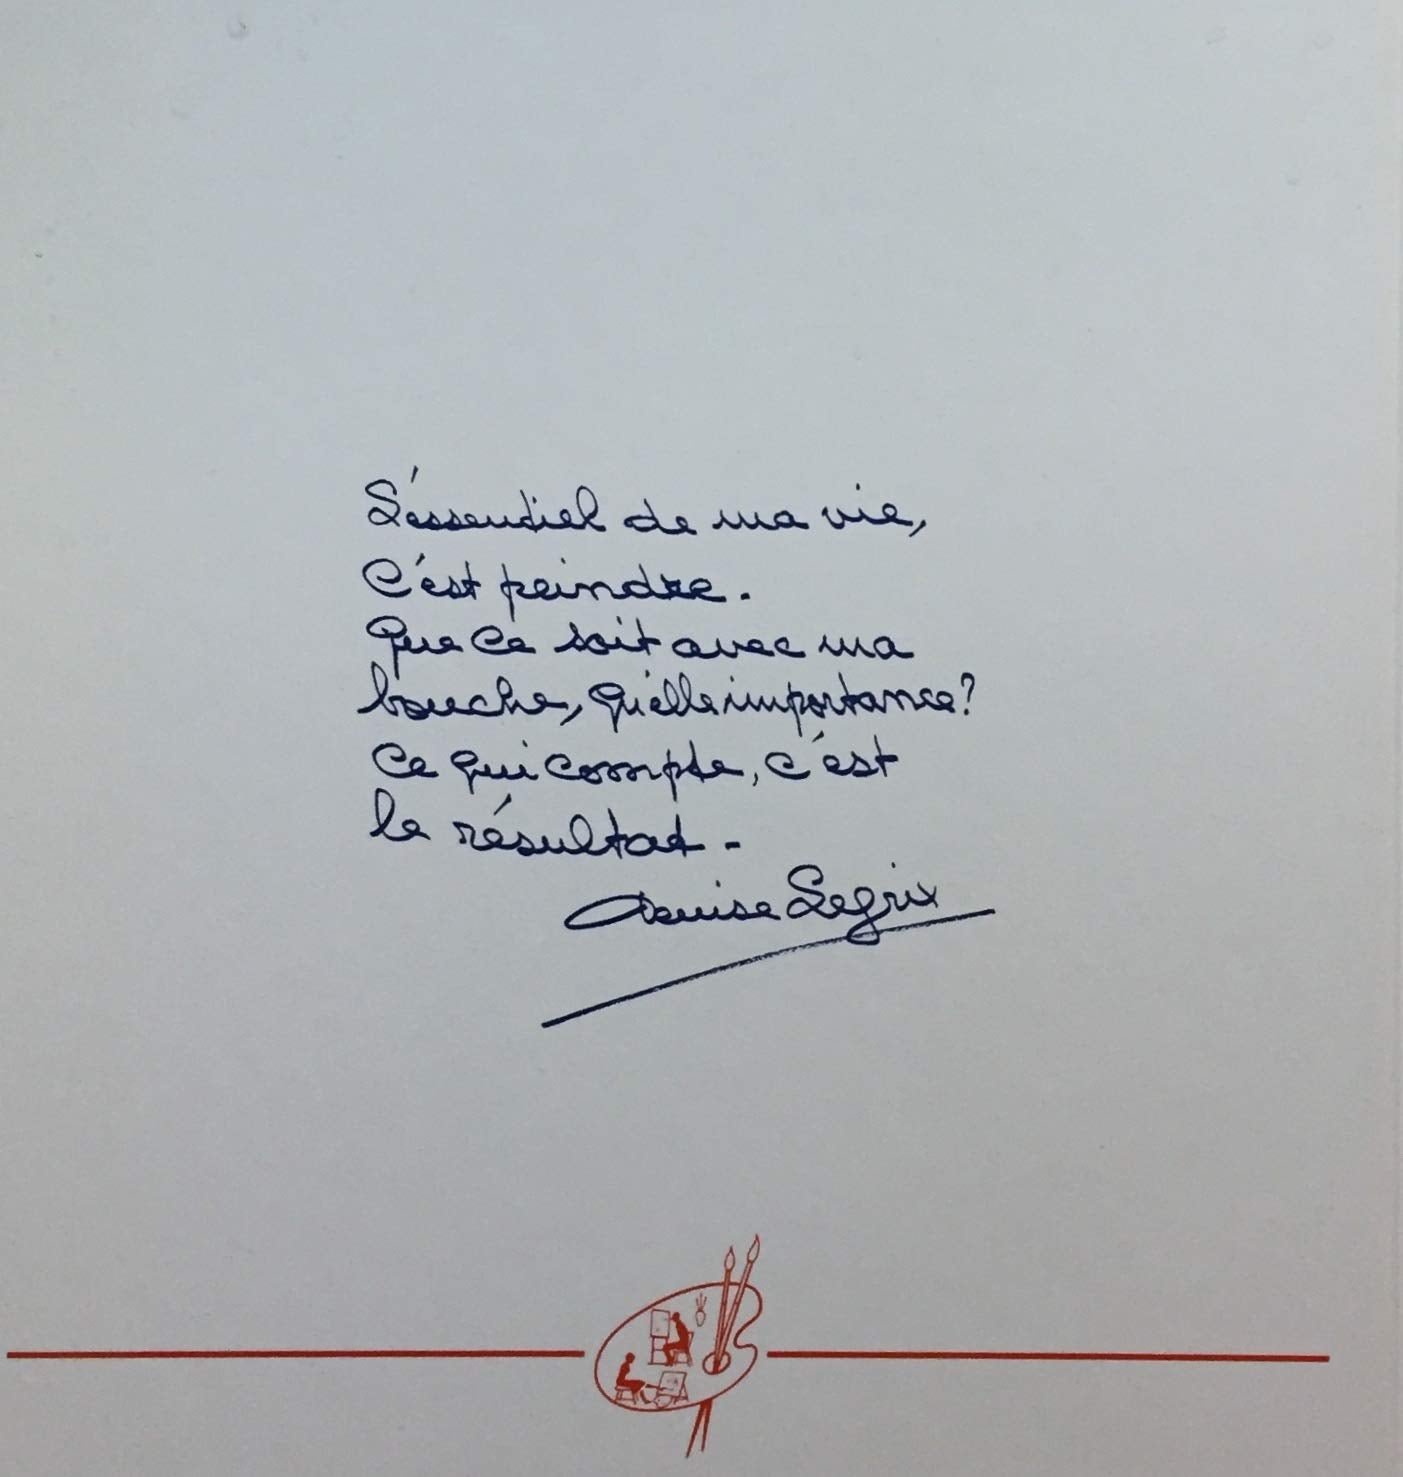 L'essentiel de ma vie,
C'est peindre.
Que ce soit avec ma
bouche, qu'elle importance?
Ce qui compte, c'est
le résultat -
Denise Legrix